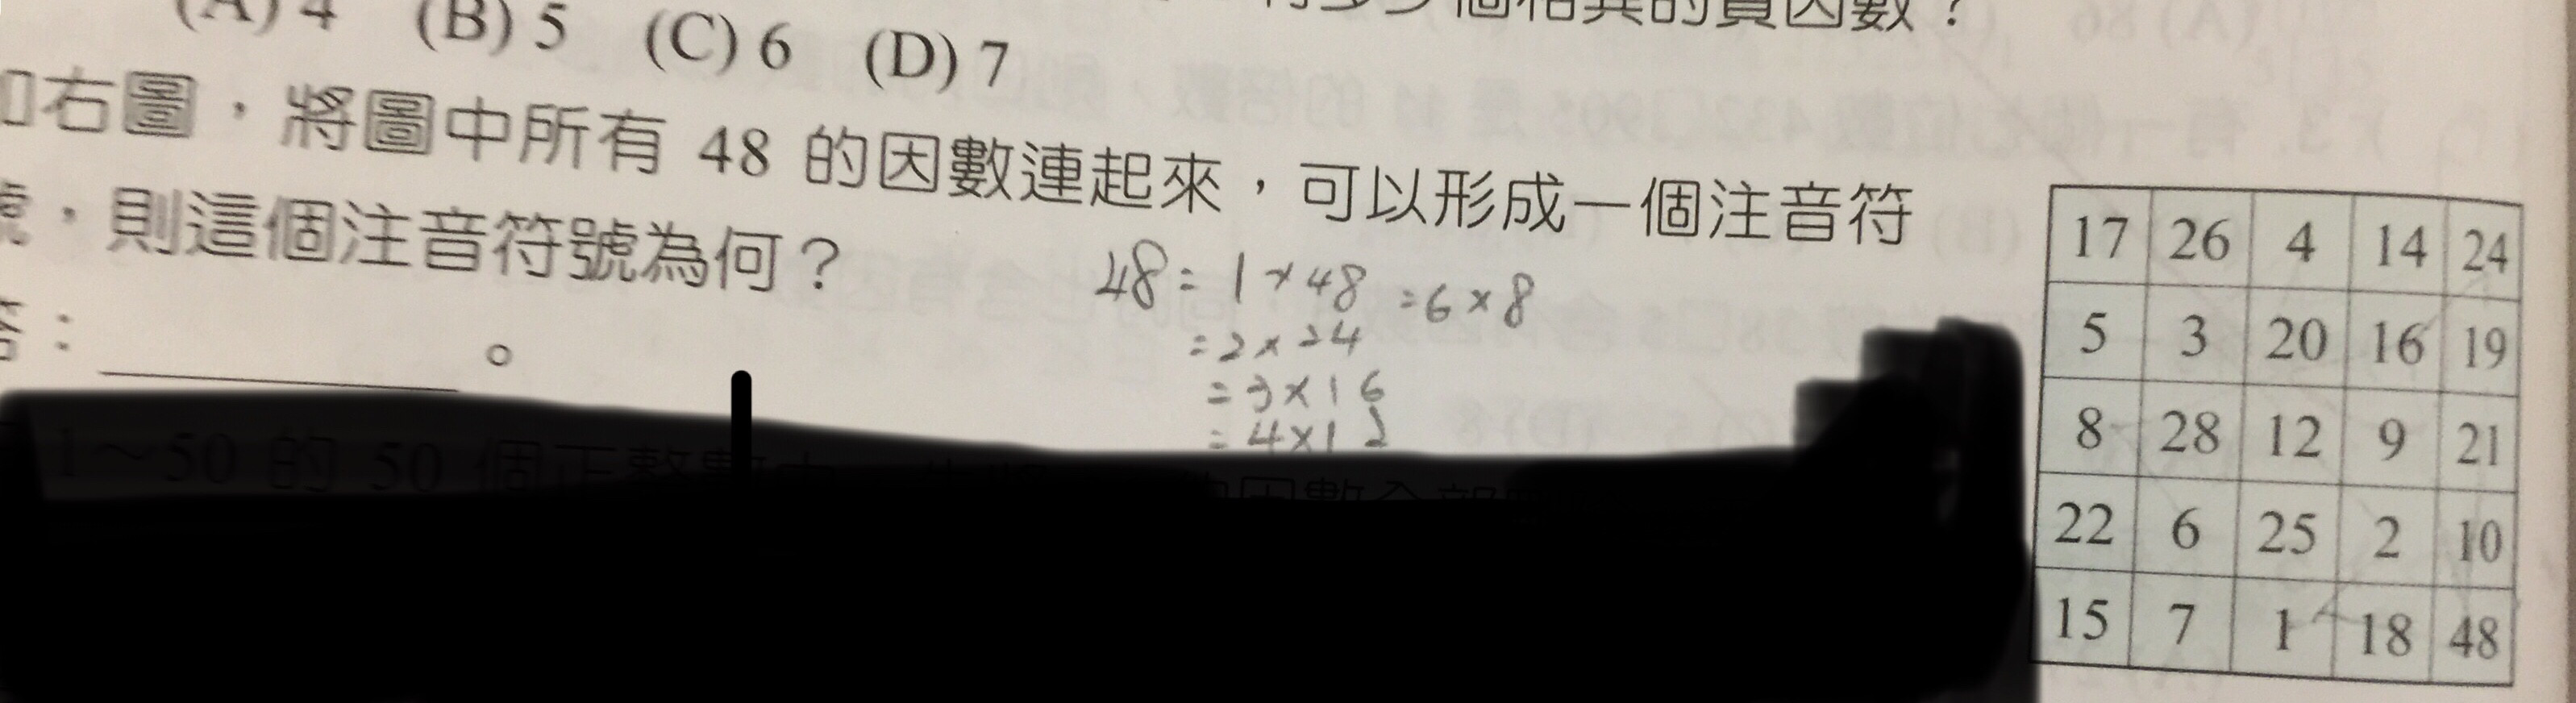 (A) 4 (B) 5 (C) 6 (D) 7
個相異的質因數？
如右圖，將圖中所有 48 的因數連起來，可以形成一個注音符
號，則這個注音符號為何？
答：＿＿＿＿＿＿。
48=1×48 =6×8
=2×24
=3×16
=4×12
17 26 4 14 24
5 3 20 16 19
8 28 12 9 21
22 6 25 2 10
15 7 1 18 48
1～50 的 50 個正整數中